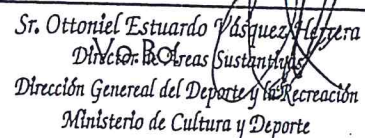 Sr. Ottoniel Estuardo Vásquez Herrera
Vo. Bo.
Director Areas Sustantivas
Dirección Genereal del Deporte y la Recreación
Ministerio de Cultura y Deporte